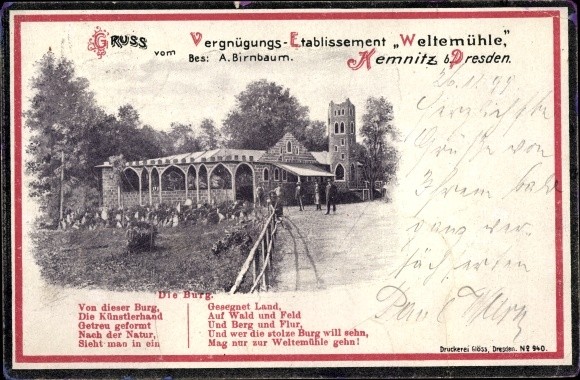 Gruss vom Vergnügungs-Etablissement „Weltemühle,"
Bes: A. Birnbaum. Kemnitz b. Dresden.
26.11.99
Herzlichste
Grüße von
Ihrem bald
ganz ver-
Die Burg.
Von dieser Burg,
Die Künstlerhand
Getreu geformt
Nach der Natur,
Sieht man in ein
Gesegnet Land,
Auf Wald und Feld
Und Berg und Flur,
Und wer die stolze Burg will sehn,
Mag nur zur Weltemühle gehn!
Druckerei Glöss, Dresden. No 940.